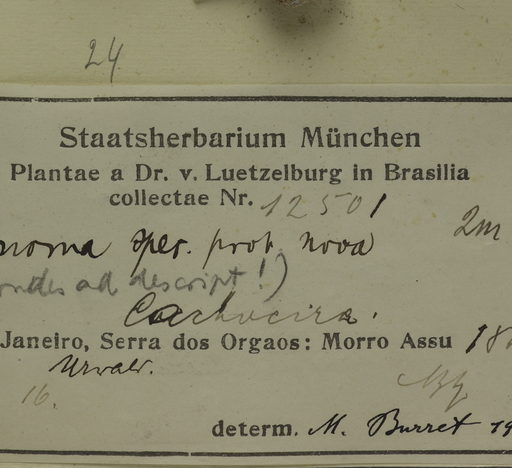 24
Staatsherbarium München
Plantae a Dr. v. Luetzelburg in Brasilia
collectae Nr. 12501
2m
noma spec. prob. nova
ad descript!)
Cachoeira.
Janeiro, Serra dos Orgaos: Morro Assu 18
Urwald.
16.
determ. M. Burret 19